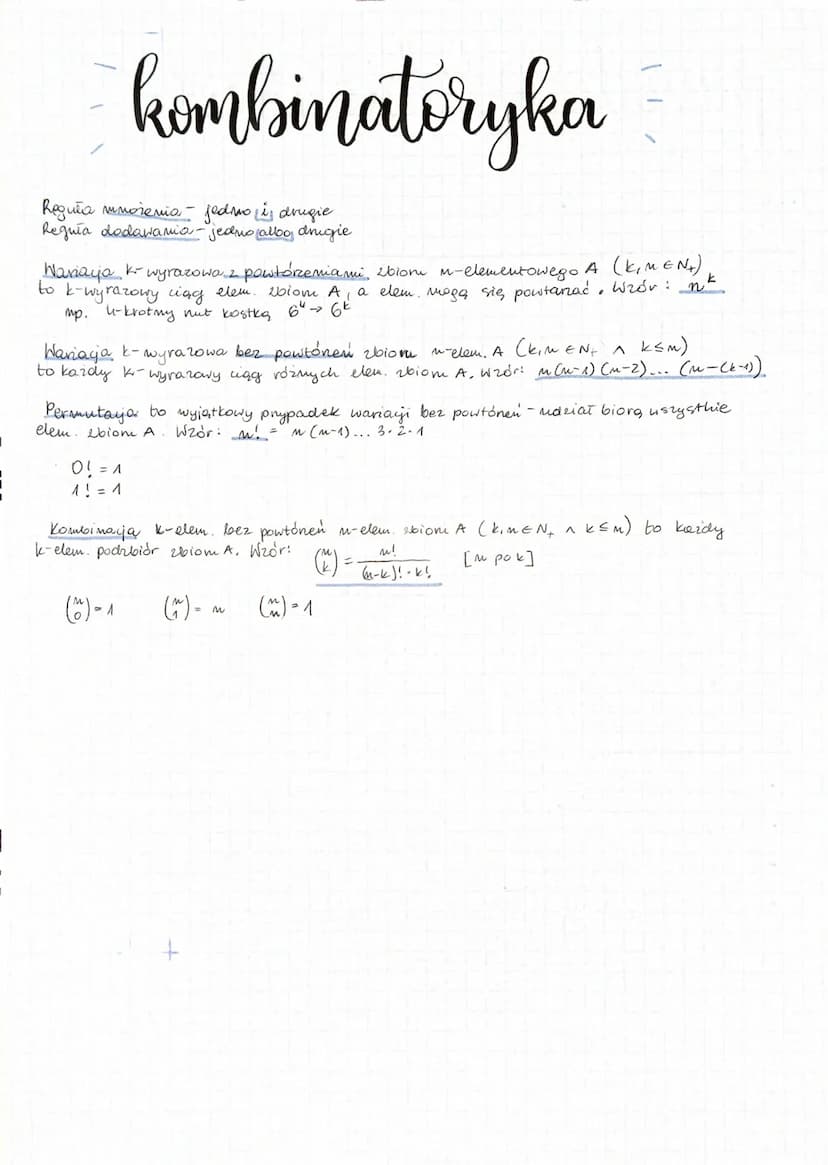 kombinatoryka
Reguła mnożenia - jedno i drugie
Reguła dodawania - jedno albo drugie
Wariacja k-wyrazowa z powtórzeniami zbioru n-elementowego A (k, n ∈ N₊)
to k-wyrazowy ciąg elem. zbioru A, a elem. mogą się powtarzać. Wzór: nᵏ
np. 4-krotny rzut kostką 6⁴ → 6ᵏ
Wariacja k-wyrazowa bez powtórzeń zbioru n-elem. A (k, n ∈ N₊ ∧ k ≤ n)
to każdy k-wyrazowy ciąg różnych elem. zbioru A. Wzór: n(n-1)(n-2)... (n-(k-1))
Permutacja to wyjątkowy przypadek wariacji bez powtórzeń - udział biorą wszystkie
elem. zbioru A. Wzór: n! = n(n-1)... 3·2·1
0! = 1
1! = 1
Kombinacją k-elem. bez powtórzeń n-elem. zbioru A (k, n ∈ N₊ ∧ k ≤ n) to każdy
k-elem. podzbiór zbioru A. Wzór: (n k) = n! / (n-k)! · k! [n po k]
(n 0) = 1 (n 1) = n (n n) = 1